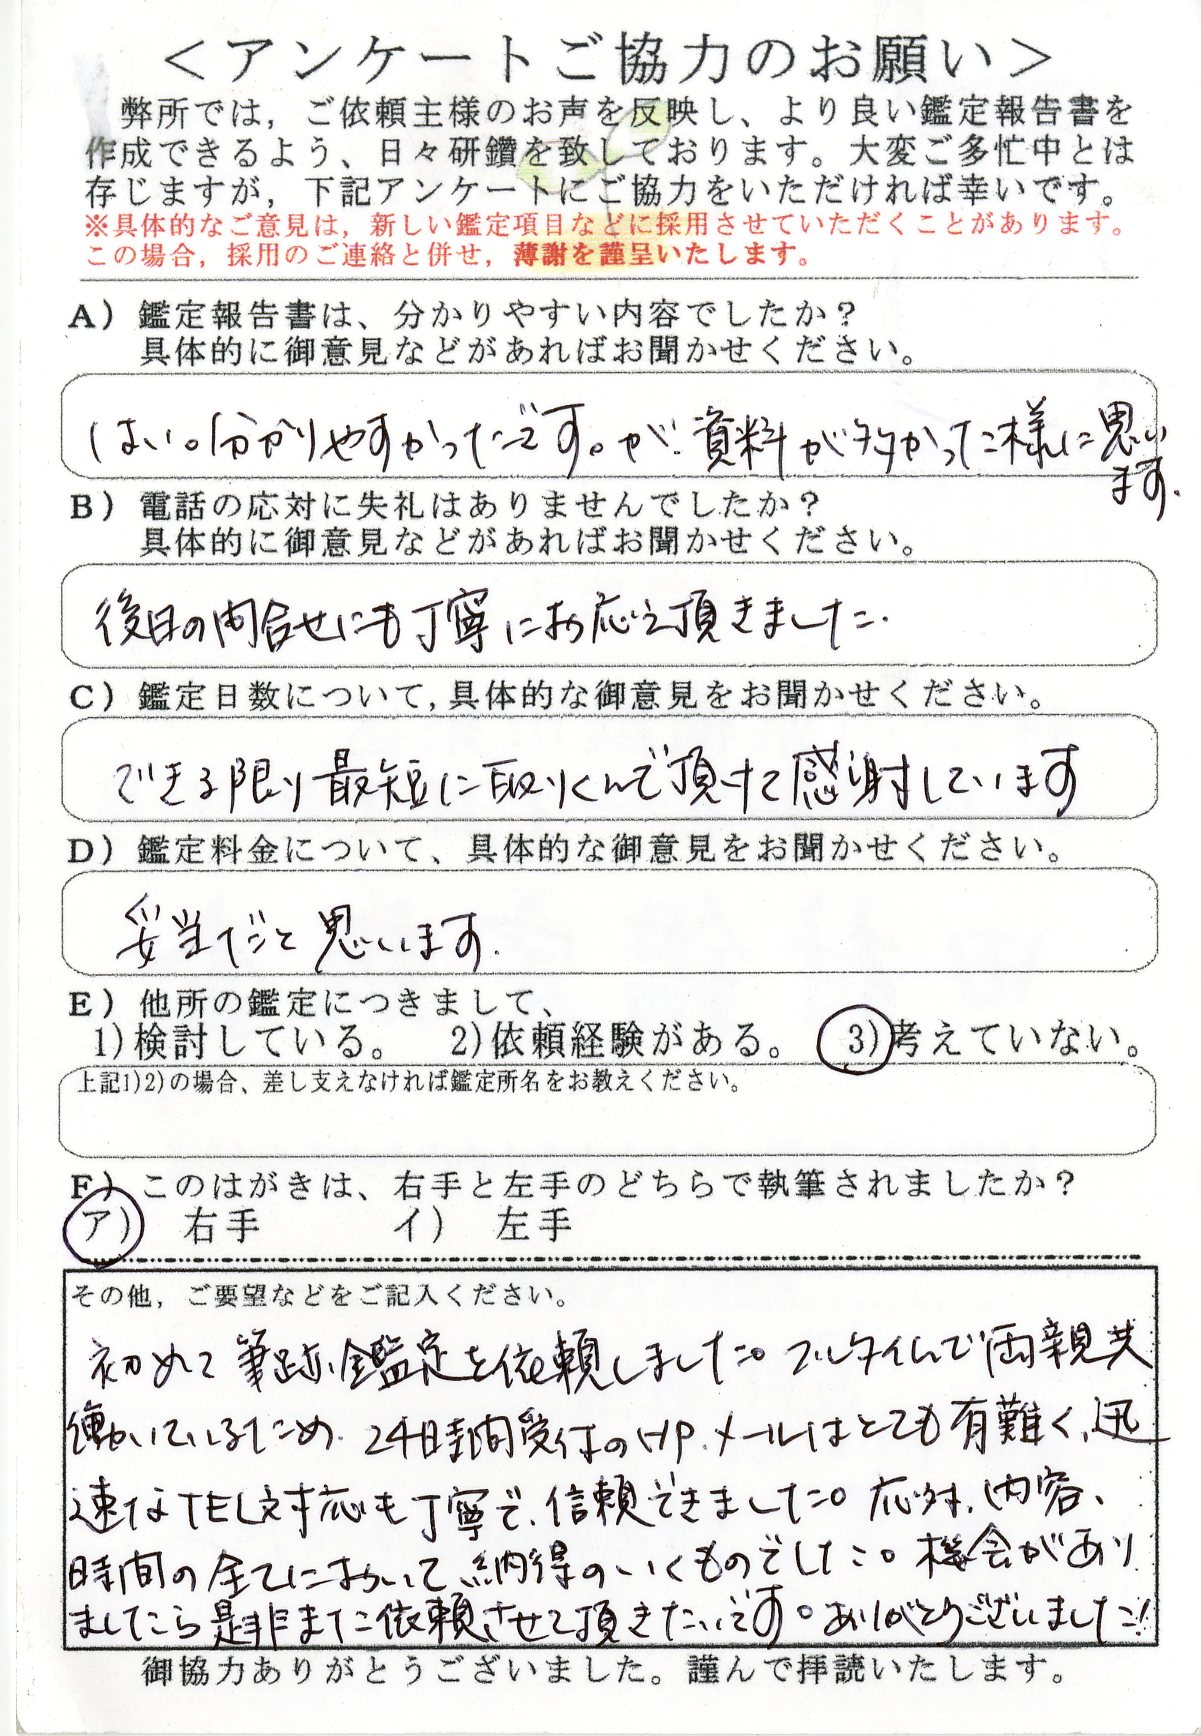 ＜アンケートご協力のお願い＞
弊所では，ご依頼主様のお声を反映し、より良い鑑定報告書を
作成できるよう、日々研鑽を致しております。大変ご多忙中とは
存じますが，下記アンケートにご協力をいただければ幸いです。
※具体的なご意見は，新しい鑑定項目などに採用させていただくことがあります。
この場合，採用のご連絡と併せ，薄謝を謹呈いたします。
A）鑑定報告書は、分かりやすい内容でしたか？
具体的に御意見などがあればお聞かせください。
はい。分かりやすかったです。が、資料が多かった様に思い
ます.
B）電話の応対に失礼はありませんでしたか？
具体的に御意見などがあればお聞かせください。
後日の問合せにも丁寧にお応え頂きました.
C）鑑定日数について，具体的な御意見をお聞かせください。
できる限り最短に取りくんで頂けて感謝しています
D）鑑定料金について、具体的な御意見をお聞かせください。
妥当だと思います.
E）他所の鑑定につきまして、
1)検討している。 2)依頼経験がある。 3)考えていない。
上記1)2)の場合、差し支えなければ鑑定所名をお教えください。
F）このはがきは、右手と左手のどちらで執筆されましたか？
ア） 右手 イ） 左手
その他，ご要望などをご記入ください。
初めて筆跡鑑定を依頼しました。フルタイムで両親共
働いているため、24時間受付のHP、メールはとても有難く、迅
速なTEL対応も丁寧で、信頼できました。応対、内容、
時間の全てにおいて納得のいくものでした。機会があり
ましたら是非また依頼させて頂きたいです。ありがとうございました！
御協力ありがとうございました。謹んで拝読いたします。